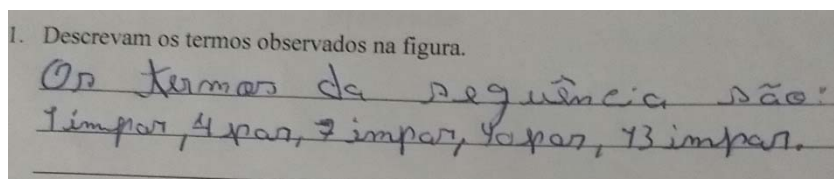 1. Descrevam os termos observados na figura.
Os termos da sequência são:
1 impar, 4 par, 7 impar, 10 par, 13 impar.